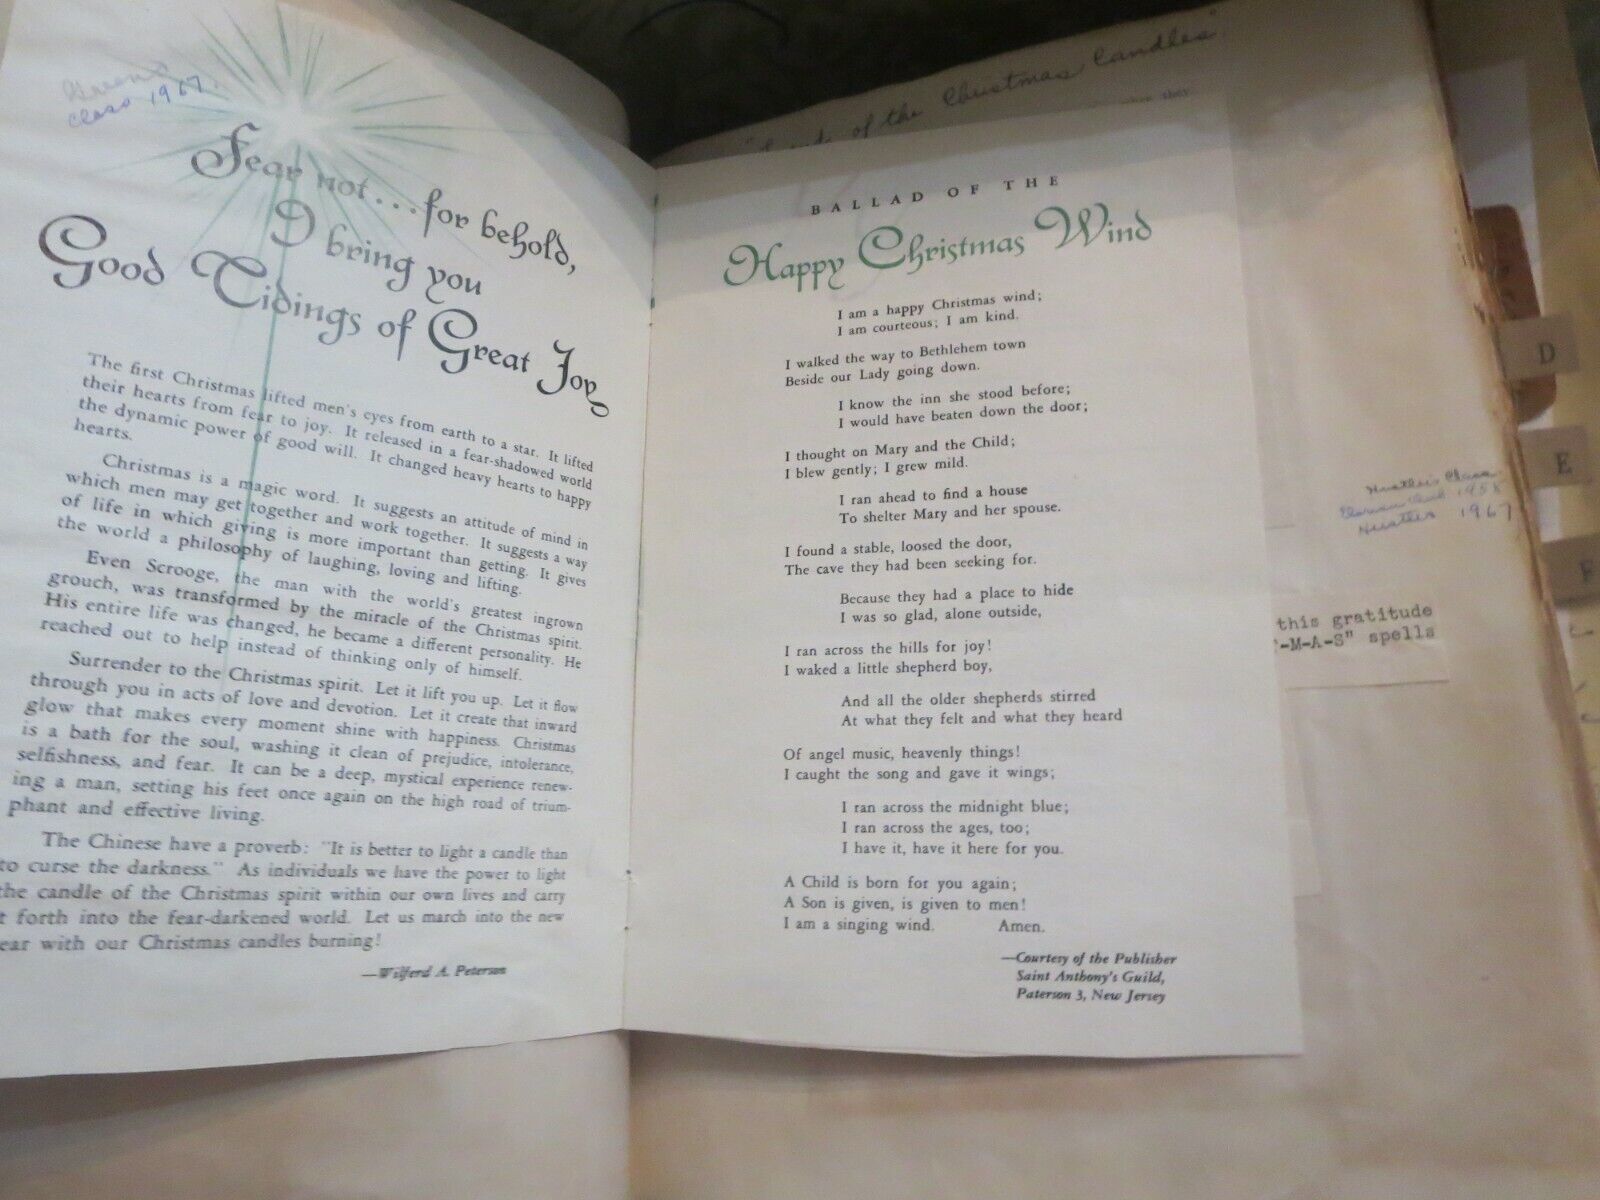 Class 1967
Fear not... for behold,
I bring you
Good Tidings of Great Joy
The first Christmas lifted men's eyes from earth to a star. It lifted
their hearts from fear to joy. It released in a fear-shadowed world
the dynamic power of good will. It changed heavy hearts to happy
hearts.
Christmas is a magic word. It suggests an attitude of mind in
which men may get together and work together. It suggests a way
of life in which giving is more important than getting. It gives
the world a philosophy of laughing, loving and lifting.
Even Scrooge, the man with the world's greatest ingrown
grouch, was transformed by the miracle of the Christmas spirit.
His entire life was changed, he became a different personality. He
reached out to help instead of thinking only of himself.
Surrender to the Christmas spirit. Let it lift you up. Let it flow
through you in acts of love and devotion. Let it create that inward
glow that makes every moment shine with happiness. Christmas
is a bath for the soul, washing it clean of prejudice, intolerance,
selfishness, and fear. It can be a deep, mystical experience renew-
ing a man, setting his feet once again on the high road of trium-
phant and effective living.
The Chinese have a proverb: "It is better to light a candle than
to curse the darkness." As individuals we have the power to light
the candle of the Christmas spirit within our own lives and carry
t forth into the fear-darkened world. Let us march into the new
ear with our Christmas candles burning!
—Wilferd A. Peterson
of the Christmas Candles"
they
BALLAD OF THE
Happy Christmas Wind
I am a happy Christmas wind;
I am courteous; I am kind.
I walked the way to Bethlehem town
Beside our Lady going down.
I know the inn she stood before;
I would have beaten down the door;
I thought on Mary and the Child;
I blew gently; I grew mild.
I ran ahead to find a house
To shelter Mary and her spouse.
I found a stable, loosed the door,
The cave they had been seeking for.
Because they had a place to hide
I was so glad, alone outside,
I ran across the hills for joy!
I waked a little shepherd boy,
And all the older shepherds stirred
At what they felt and what they heard
Of angel music, heavenly things!
I caught the song and gave it wings;
I ran across the midnight blue;
I ran across the ages, too;
I have it, have it here for you.
A Child is born for you again;
A Son is given, is given to men!
I am a singing wind. Amen.
—Courtesy of the Publisher
Saint Anthony's Guild,
Paterson 3, New Jersey
Hustlers Class
1958
Hustlers 1967
this gratitude
-M-A-S" spells
D
E
F